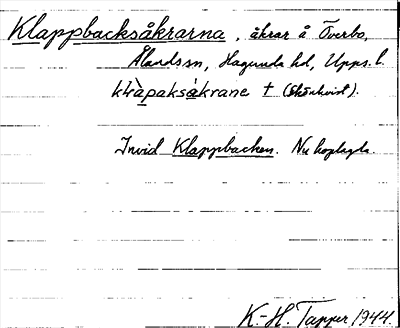 Klappbacksåkrarna, åkrar å Överbo,
Ålands sn, Hagunda hd, Upps. l.
klàpaksåkrane † (Skönkvist).
Invid Klappbacken. Nu hoplagda.
K.-H. Tapper 1944.